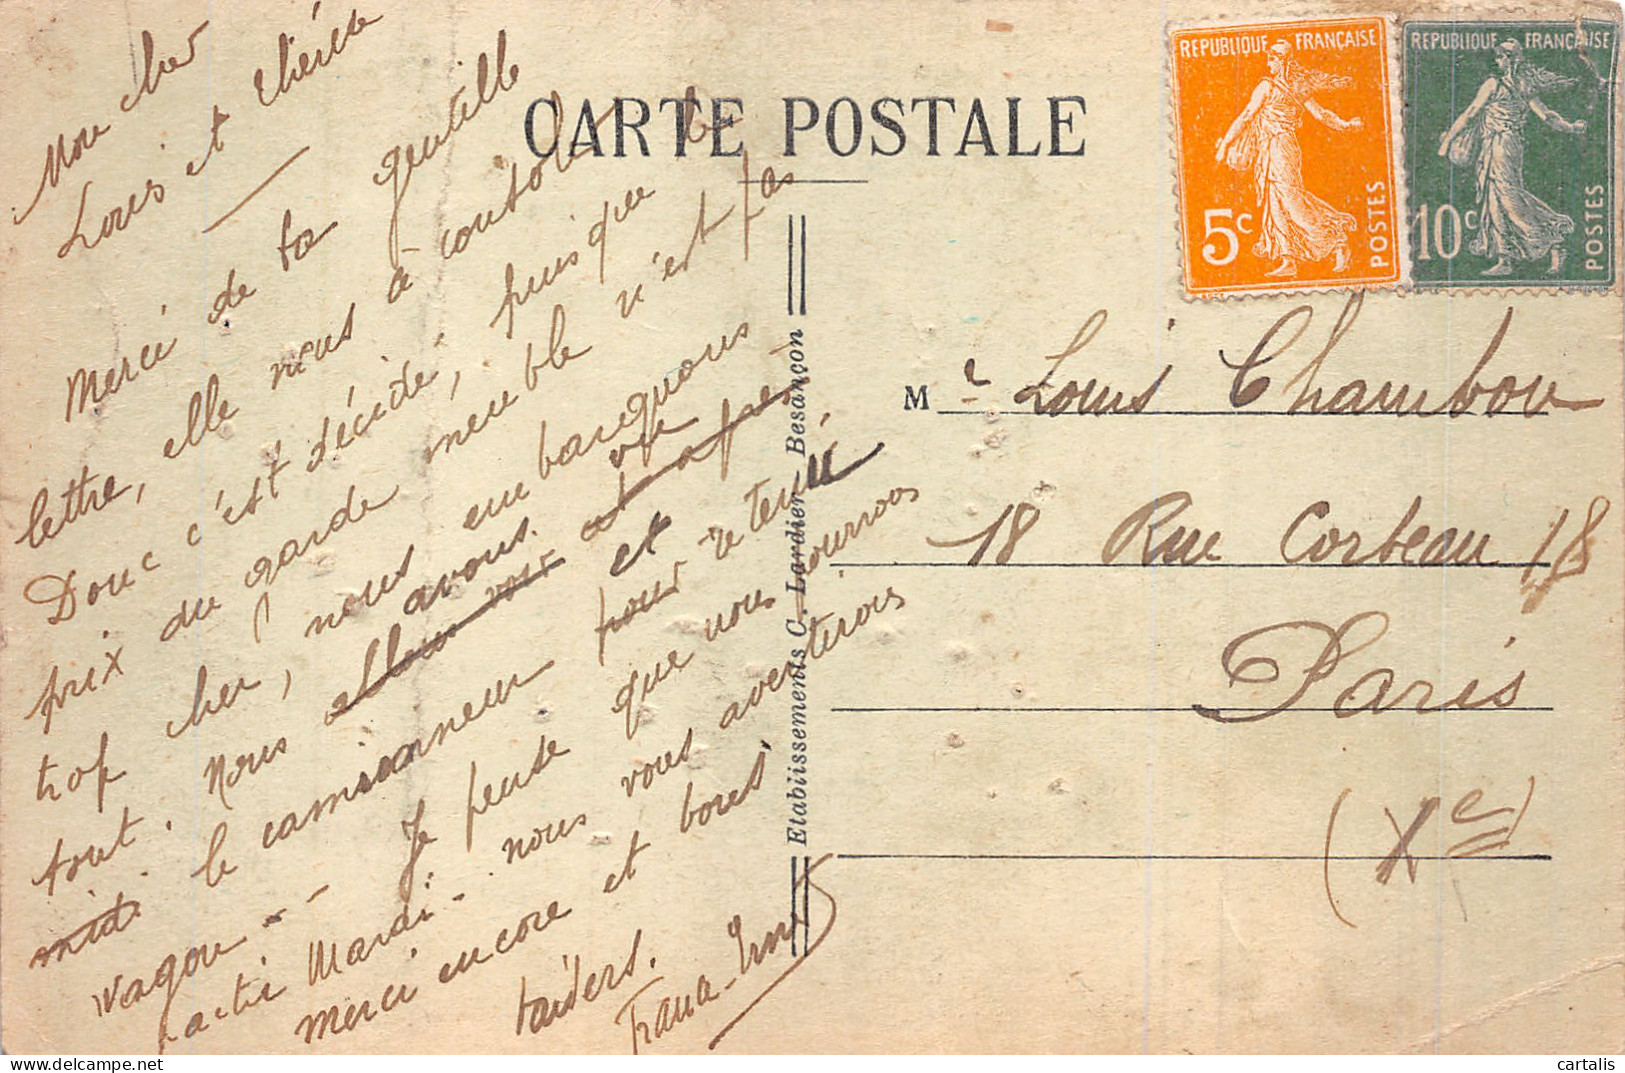 CARTE POSTALE
REPUBLIQUE FRANÇAISE
5c POSTES
REPUBLIQUE FRANÇAISE
10c POSTES
Mon cher
Louis et chérise
Merci de ta gentille
lettre, elle nous à
Donc c'est décidé, puisque le
prix du garde meuble n'est pas
trop cher, nous embarquons
tout. Nous avons vu
allons voir et après
midi le camionneur et pour retenir
wagon - Je pense que nous pourrons
partir Mardi - nous vous avertirons
merci encore et bons
baisers.
Etablissements C. Lardier Besançon
M r Louis Chambon
18 Rue Corbeau 18
Paris
(Xe)
cartalis